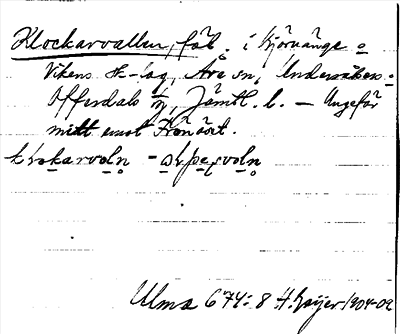 Klockarvallen, fäb. i Björnänge o
Vikens sk-lag, Åre sn, Undersåkers o
Offerdals tg, Jämtl. l. – Ungefär
mitt emot Krondört.
Ulma 674:8 H. Geijer 1904-09